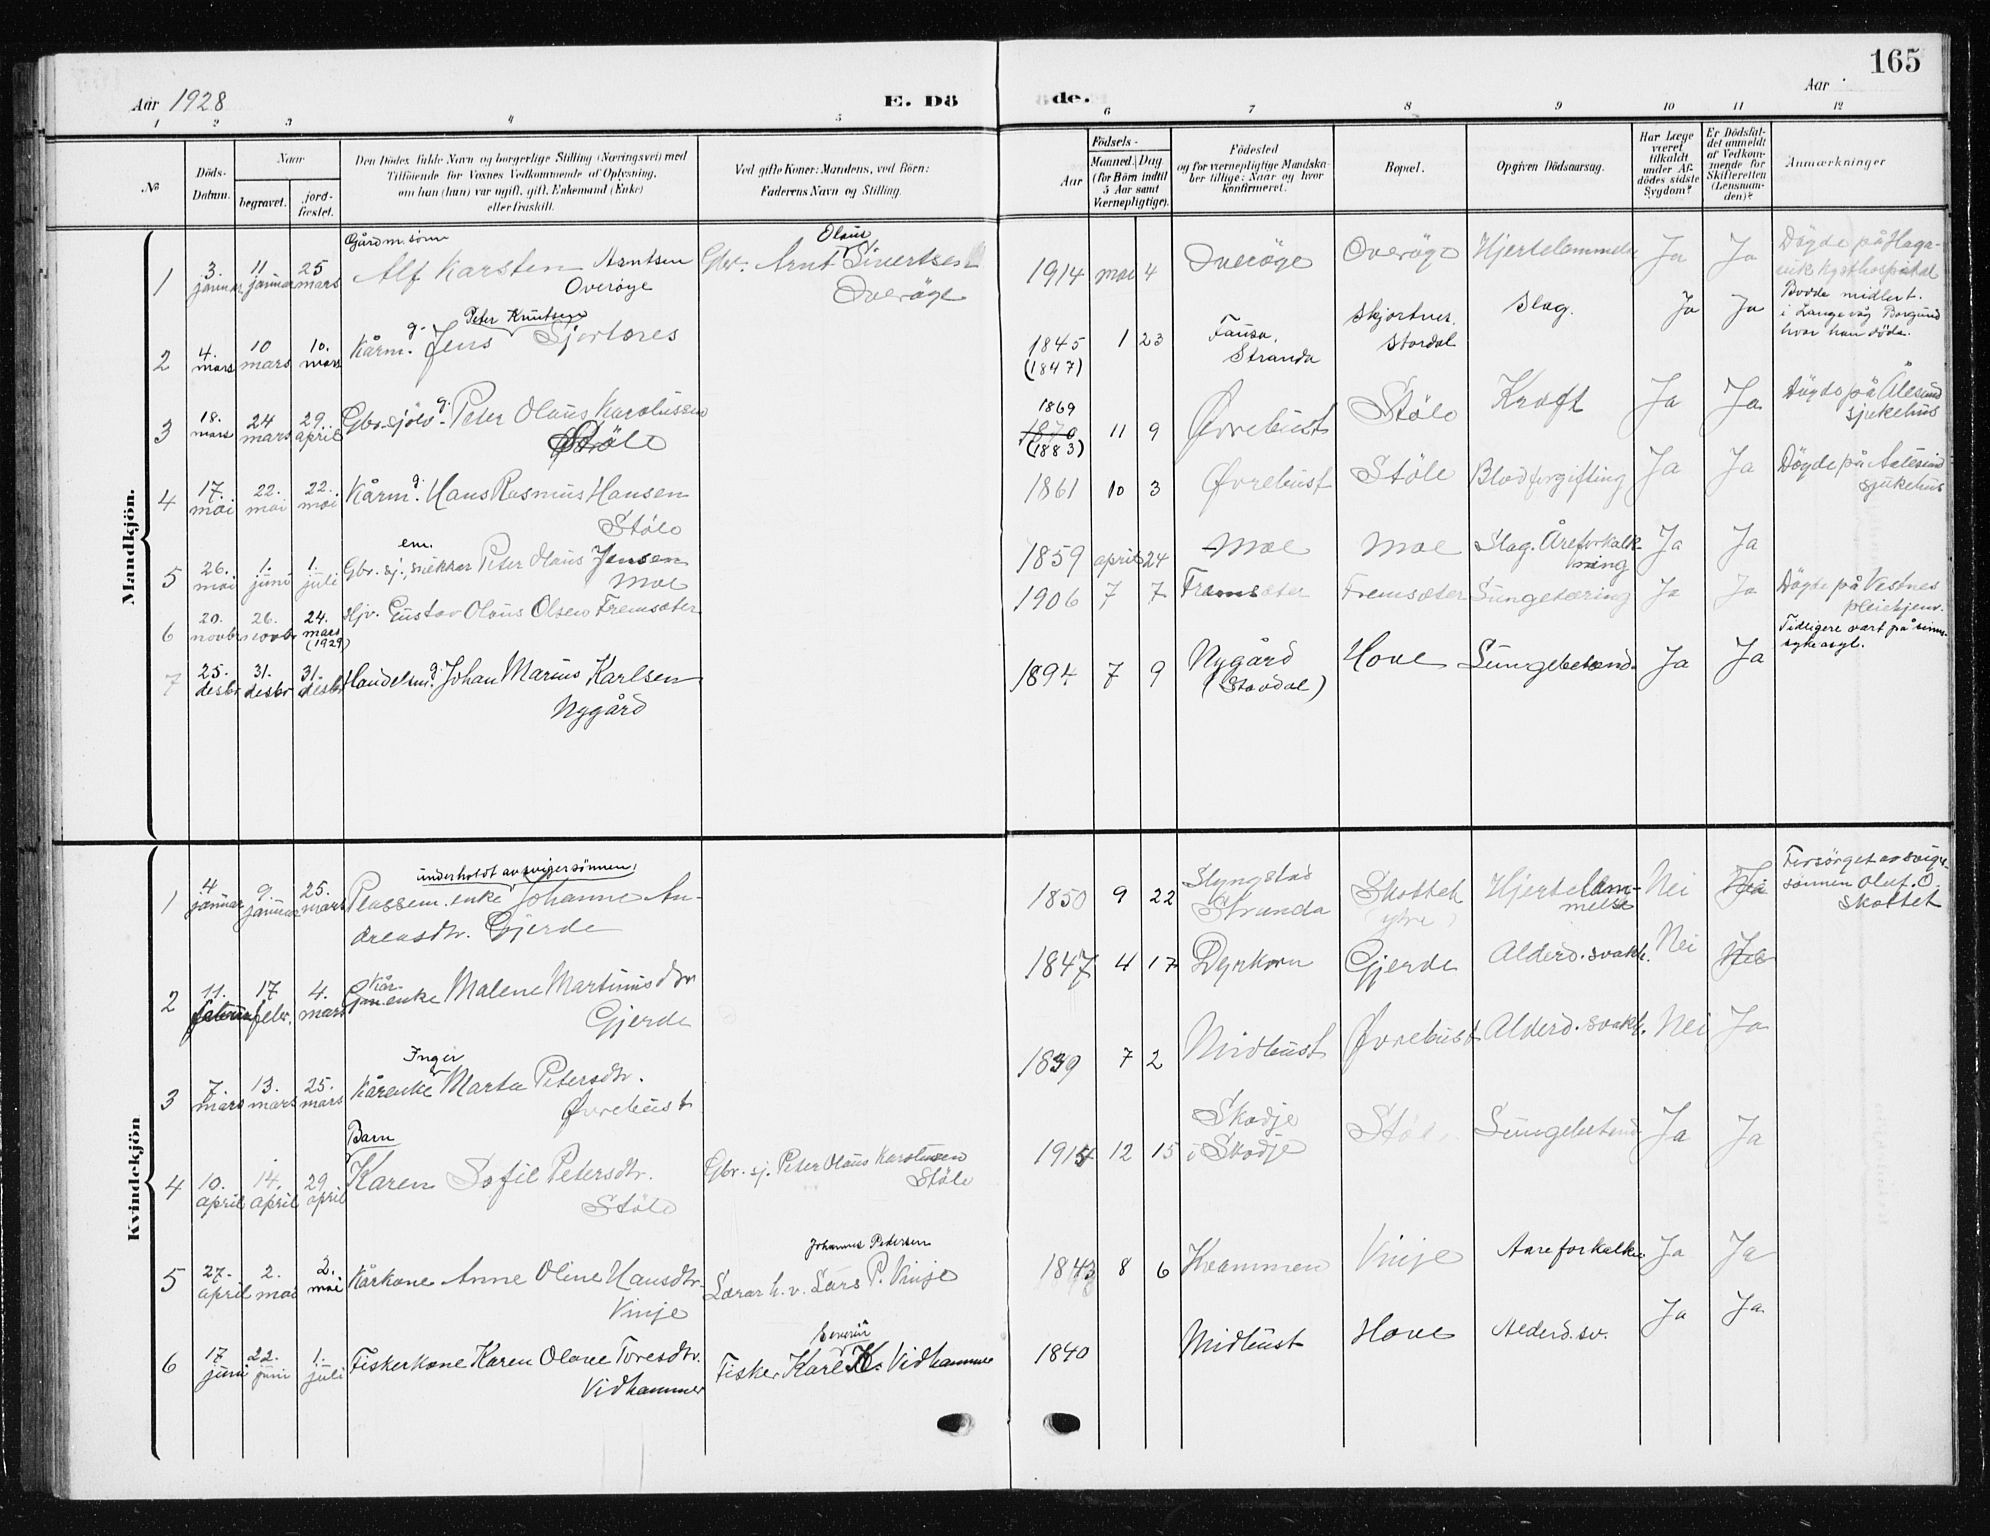 165
Aar 1928
E. Dö
de.
Aar
1 2 3 4 5 6 7 8 9 10 11 12
№
Döds-
Datum.
Naar
begravet.
jord-
fæstet.
Den Dödes fulde Navn og borgerlige Stilling (Næringsvei) med
Tilföiende for Voxnes Vedkommende af Oplysning,
om han (hun) var ugift, gift, Enkemand (Enke)
eller fraskilt.
Ved gifte Koner: Mandens, ved Börn:
Faderens Navn og Stilling.
Födsels-
Aar
Maaned. Dag
(for Börn indtil
5 Aar samt
Værnepligtige).
Födested
og for værnepligtige Mandska-
ber tillige: Naar og hvor
konfirmeret.
Bopæl.
Opgiven Dödsaarsag.
Har Læge
været
tilkaldt
under Af-
dödes sidste
Sygdom?
Er Dödsfal-
det anmeldt
af Vedkom-
mende for
Skifteretten
(Lensman-
den)?
Anmærkninger
Mandkjön.
1 3. januar 11 januar 25 mars
Gårdm. sønn
Alf Karsten Arntsen
Overøye
Gbr. Arnt Olaus Sivertsen
Overøye
1914 mai 4 Overøye Overøye Hjertelammelse Ja Ja
Døyde på Haga-
vik kysthospital
2 4. mars 10 mars 10. mars
Kårm. g. Jens Peter Knutsen Sjortnes
1845 1 23
(1847)
Fausa,
Stranda
Skjortnes
Stordal
Slag. Ja Ja
Budde midlert.
i Langevåg Borgund
hvor han døde.
3 18. mars 24 mars 29. april
Gbr. sjølv. g. Peter Olaus Karolussen
Støle
1869
1870 11 9
(1883)
Øvrebust Støle Kræft Ja Ja
Døyde på Ålesund
sjukehus
4 17. mai 22. mai 22. mai
Kårm. g. Hans Rasmus Hansen
Støle
1861 10 3 Øvrebust Støle Blodforgifting Ja Ja
Døyde på Aalesund
sjukehus
5 26. mai 1. juni 1. juli
Gbr. sj., snekker em. Peter Olaus Jensen
Moe
1859 april 24 Moe Moe Slag. Åreforkalk-
ning
Ja Ja
6 20. novbr 26. novbr 24. mars (1929)
Hjv. Gustav Olaus Olsen Fremsæter
1906 7 7 Fremsæter Fremsæter Lungetæring Ja Ja
Døyde på Vestnes
pleiehjem.
Tidligere vært på sinns-
sykeasyl.
7 25. desbr 31. desbr 31. desbr
Handelsm. g. Johan Marius Karlsen
Nygård
1894 7 9 Nygård
(Stordal)
Hove Lungebetend. Ja Ja
Kvindekjön
1 4 januar 9. januar 25. mars
underholdt av svigersønnen
Plassem. enke Johanne An-
dreasdtr. Gjerde
1850 9 22 Slyngstad
Stranda
Skottet
(ytre)
Hjertelam-
melse
Nei
Forsørget av svige-
sønnen Oluf O.
Skottet
2 11. februar 17 febr. 4. mars
Kår-
enke Malene Martinusdtr
Gjerde
1847 4 17 Dyrkorn Gjerde Alderd.svakh. Nei
3 7. mars 13. mars 25. mars
Inger
Kårenke Marta Petersdtr.
Øvrebust
1839 7 2 Midtbust Øvrebust Alderd.svakh. Nei Ja
4 10. april 14. april 29. april
Barn
Karen Sofie Petersdtr.
Støle
Gbr. sj. Peter Olaus Karolussen
Støle
1915 12 15 Skodje
i Skodje
Støle Lungebetend Ja Ja
5 27. april 2. mai 2. mai
Kårkone Anne Oline Hansdtr.
Vinje
Johannes Pedersen
Lærar h. v. Lars P. Vinje
1843 8 6 Kvammen Vinje Aareforkalkn Ja Ja
6 17 juni 22. juni 1. juli
Fiskerkone Karen Olave Toresdtr.
Vidhammer
Severin
Fisker Karl K. Vidhammer
1840 Midtbust Hove Alderd.sv. Ja Ja